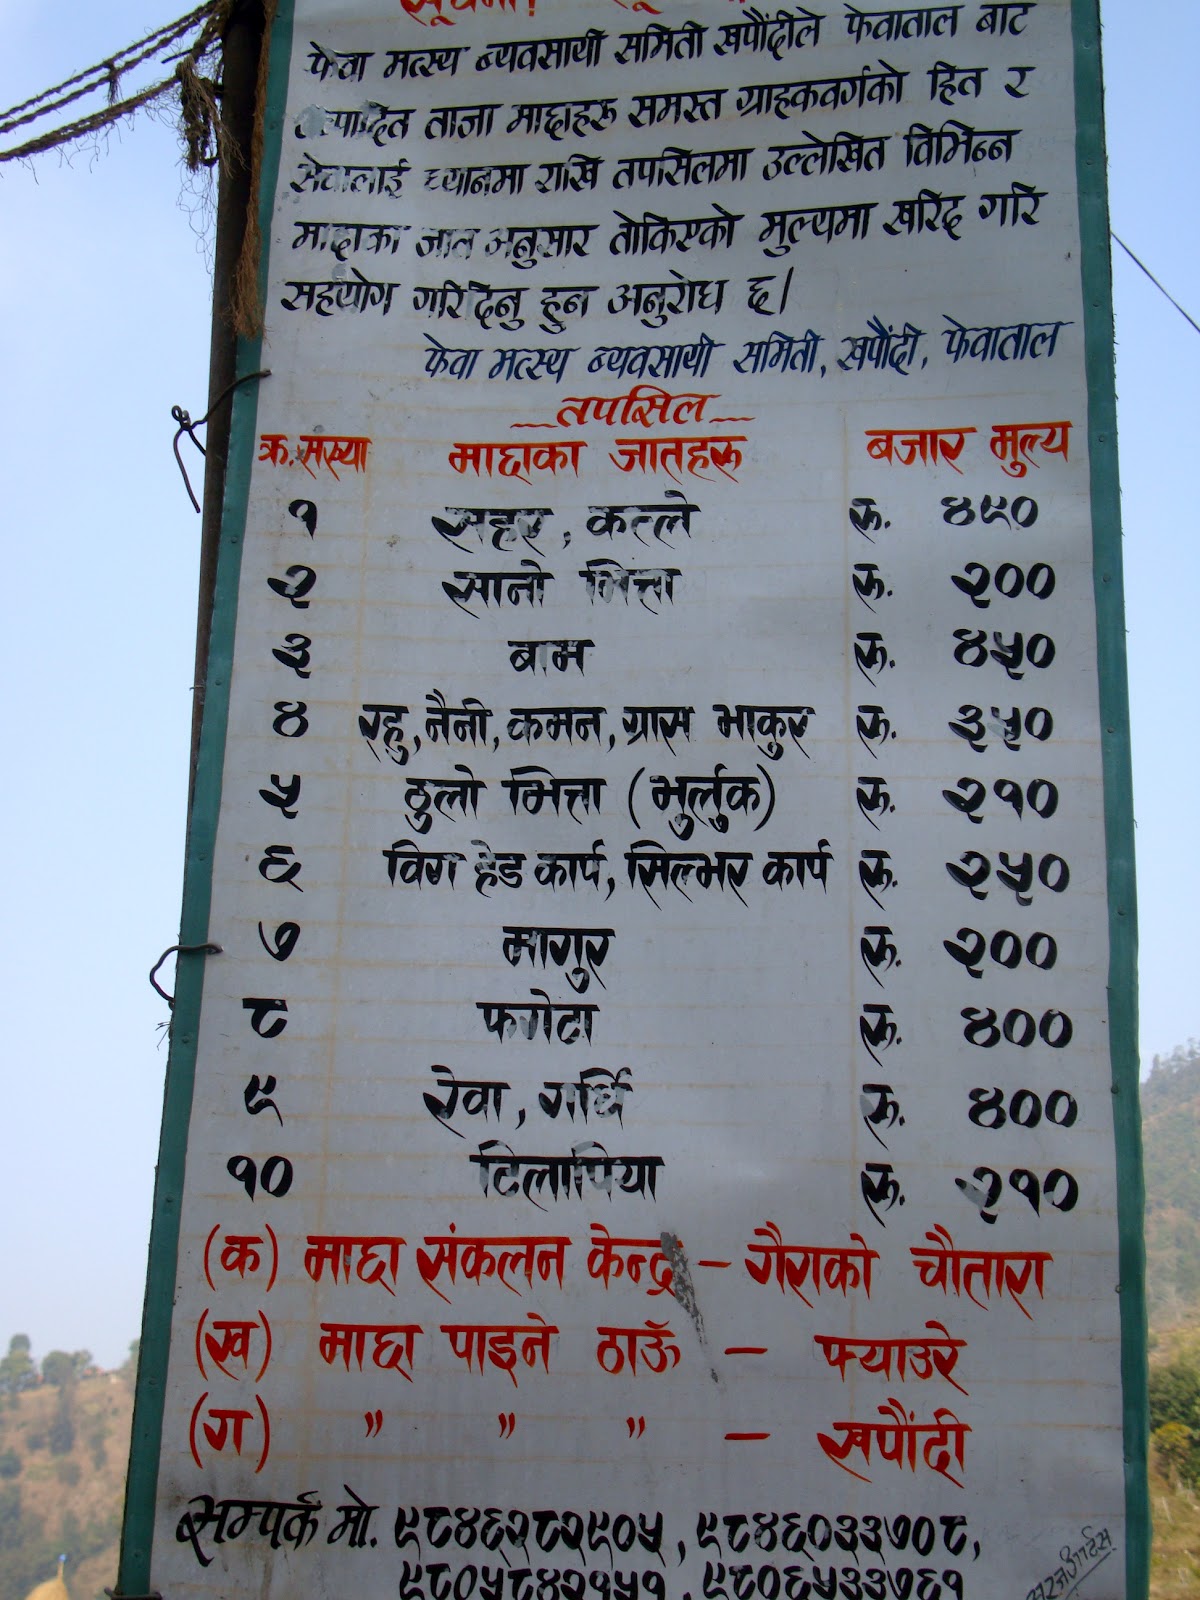 सूचना!
फेवा मत्स्य ब्यवसायी समिती खपौंदीले फेवाताल बाट
उत्पादित ताजा माछाहरू समस्त ग्राहकवर्गको हित र
सेवालाई ध्यानमा राखि तपसिलमा उल्लेखित विभिन्न
माछाका जात अनुसार तोकिएको मुल्यमा खरिद गरि
सहयोग गरिदिनु हुन अनुरोध छ।
फेवा मत्स्य ब्यवसायी समिती, खपौंदी, फेवाताल
तपसिल
क्र.संख्या माछाका जातहरू बजार मुल्य
१ सहर, कत्ले रू. ४९०
२ सानो भित्ता रू. २००
३ बाम रू. ४५०
४ रहु, नैनी, कमन, ग्रास भाकुर रू. ३५०
५ ठुलो भित्ता (भुर्लुक) रू. २१०
६ विग हेड कार्प, सिल्भर कार्प रू. २५०
७ मागुर रू. २००
८ फगेटा रू. ४००
९ रेवा, गर्धि रू. ४००
१० टिलापिया रू. २१०
(क) माछा संकलन केन्द्र – गैराको चौतारा
(ख) माछा पाइने ठाऊँ – फ्याउरे
(ग) " " " – खपौंदी
सम्पर्क मो. ९८४६२८२९०५, ९८४६०३३७०८,
९८०५८४२१५१, ९८०६५३३७६१